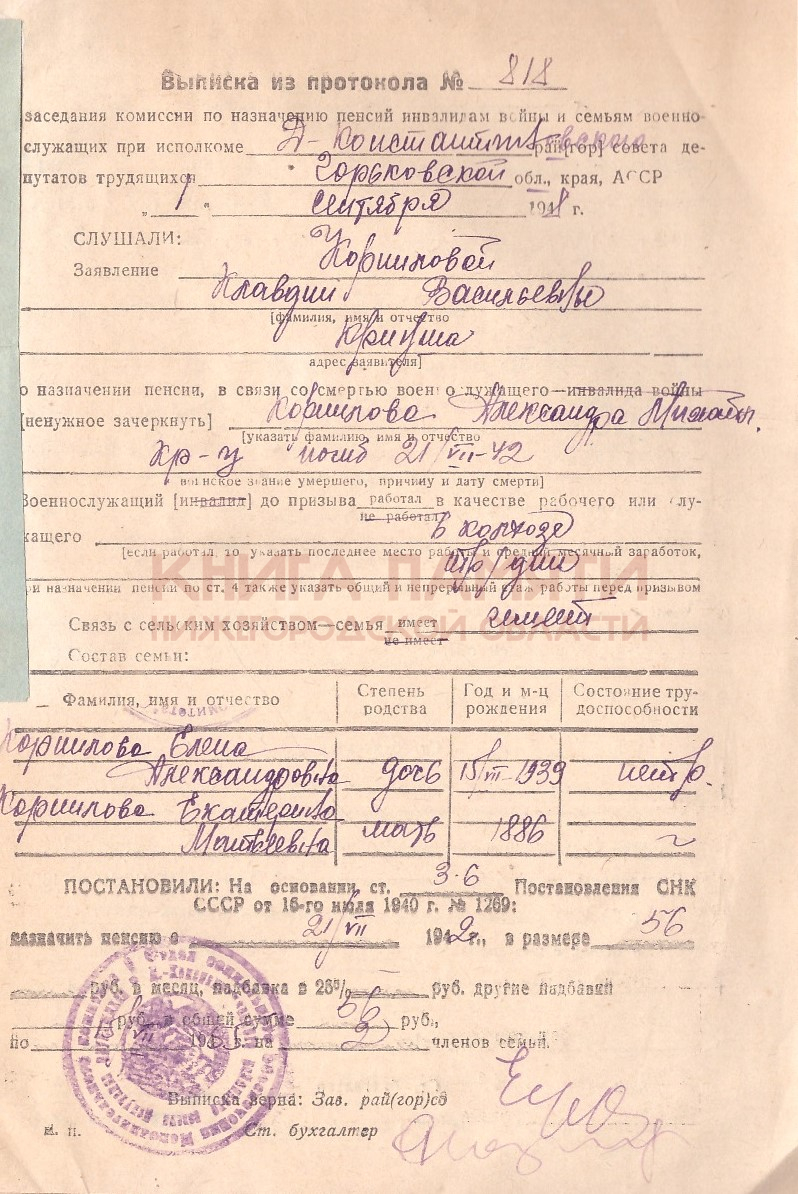 Выписка из протокола № 818
заседания комиссии по назначению пенсий инвалидам войны и семьям военно-
служащих при исполкоме Д-Константиновского рай[гор] совета де-
путатов трудящихся Горьковской обл., края, АССР
„ 1 “ сентября 194 г.
СЛУШАЛИ:
Заявление Корниловой
Клавдии Васильевны
[фамилия, имя и отчество
Криуша
адрес заявителя]
о назначении пенсии, в связи со смертью военнослужащего—инвалида войны
[ненужное зачеркнуть] Корнилова Александра
[указать фамилию, имя и отчество
Кр-ц погиб 21/VII-42
воинское звание умершего, причину и дату смерти]
Военнослужащий [инвалид] до призыва работал в качестве рабочего или слу-
не работал
жащего в колхозе
[если работал, то указать последнее место работы и средний месячный заработок,
дни
при назначении пенсии по ст. 4 также указать общий и непрерывный стаж работы перед призывом
КНИГА ПАМЯТИ
НИЖЕГОРОДСКОЙ ОБЛАСТИ
Связь с сельским хозяйством—семья имеет имеет
не имеет
Состав семьи:
Фамилия, имя и отчество Степень родства Год и м-ц рождения Состояние тру-доспособности
Корнилова Елена
Александровна дочь 15/VII-1939 нетр.
Корнилова Екатерина
Матвеевна мать 1886 ~
ПОСТАНОВИЛИ: На основании ст. 3.6 Постановления СНК
СССР от 16-го июля 1940 г. № 1269:
назначить пенсию с 21/VII 1942 г., в размере 56
руб. в месяц, надбавка в 25% руб. другие надбавки
руб. в общей сумме 56 руб.,
по 15/VII 195 г. на 2 членов семьи.
Выписка верна: Зав. рай(гор)со
м. п. Ст. бухгалтер